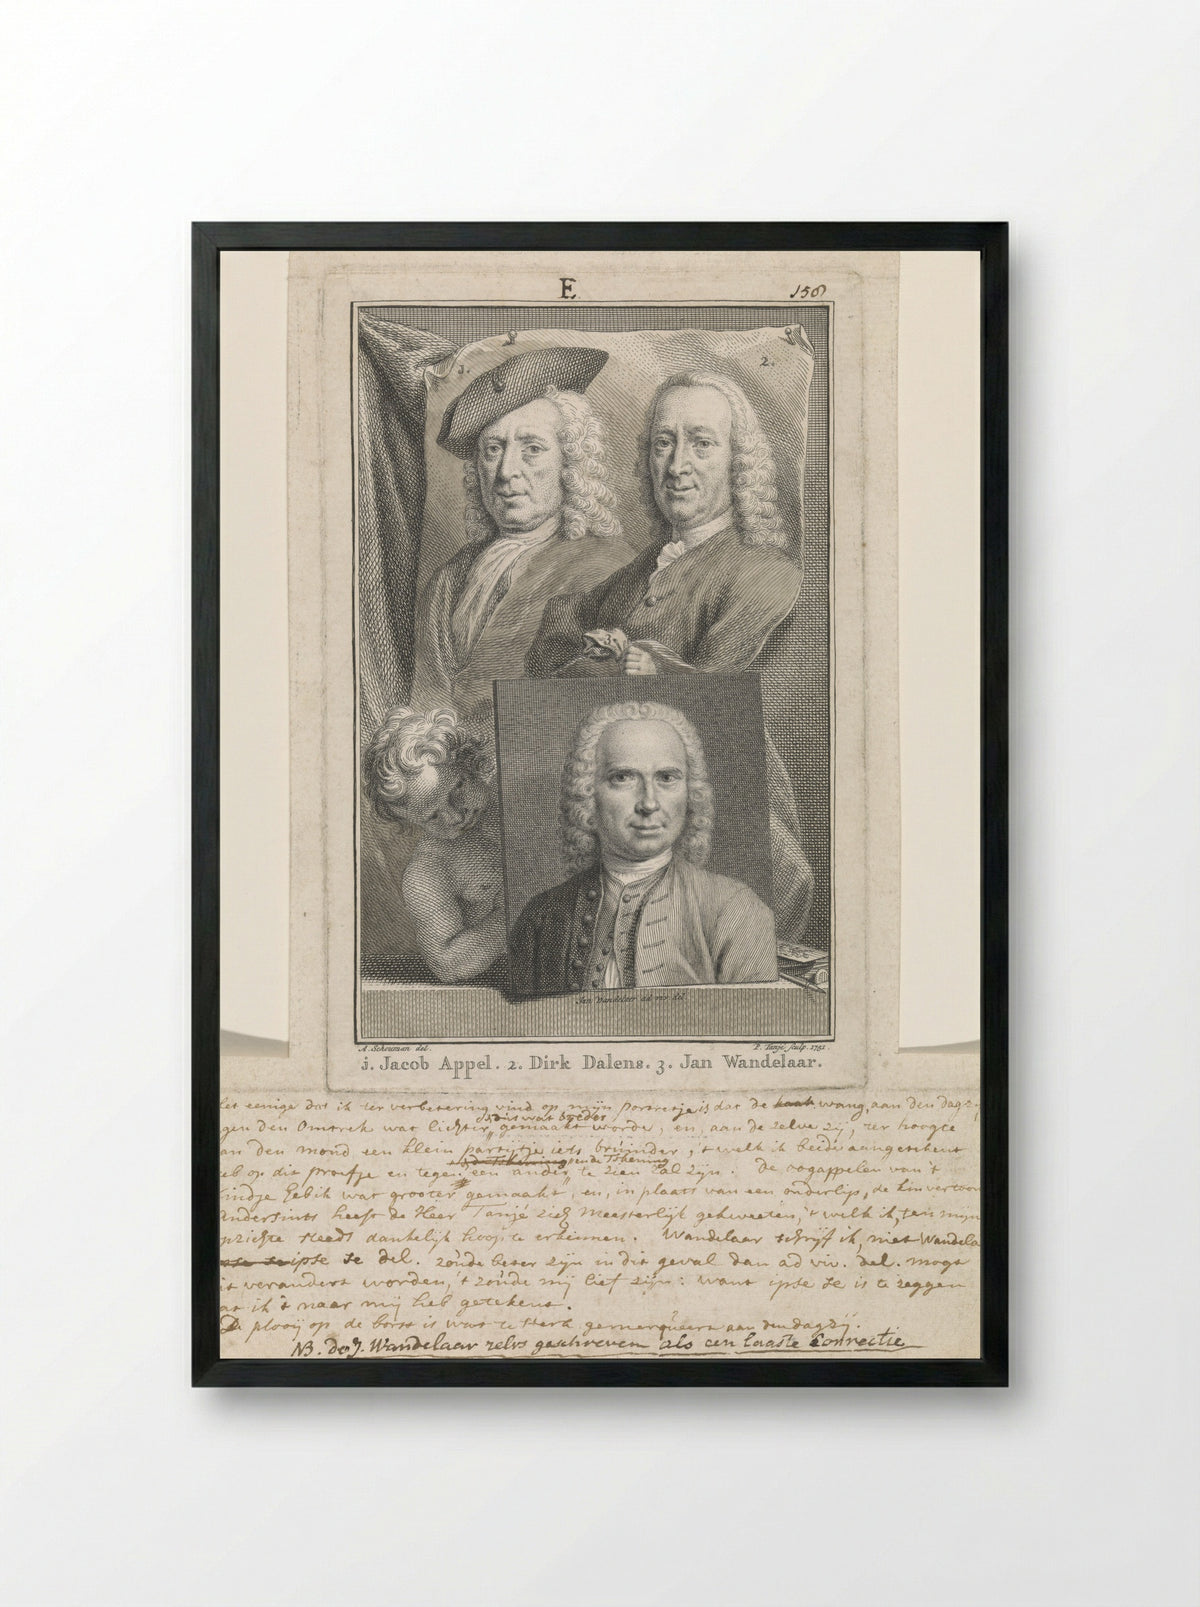 E
156
1.
2.
3.
Jan Wandelaar ad viv. del.
A. Schouman del.
P. Tanjé sculp. 1751
j. Jacob Appel. 2. Dirk Dalens. 3. Jan Wandelaar.
et eenige dat ik ter verbetering vind op mijn portretje is dat de wang, aan den dag
dit wat breeder
gen den Omtrek wat lichter gemaakt worde, en, aan de zelve zij, ter hoogte
an den mond een klein partijtje iets bruinder, 't welk ik beide aangetekent
eb op dit proefje en tegen een ander te zien zal zijn. De oogappelen van 't
indje heb ik wat grooter gemaakt, en, in plaats van een onderlip, de kin vertoon
Andersints heeft de Heer Tanjé zich meesterlijk gekweeten, 't welk ik, ten mijn
opzichte steeds dankelijk hoop te erkennen. Wandelaar schrijf ik, niet Wandela
ipse se del. zoude beter zijn in dit geval dan ad viv. del. mogt
it verandert worden, 't zoude mij lief zijn: want ipse se is te zeggen
at ik 't naar mij heb getekent.
De plooij op de borst is wat te sterk aan den dagzij.
NB. de J. Wandelaar zelvs geschreven als een laatste Correctie